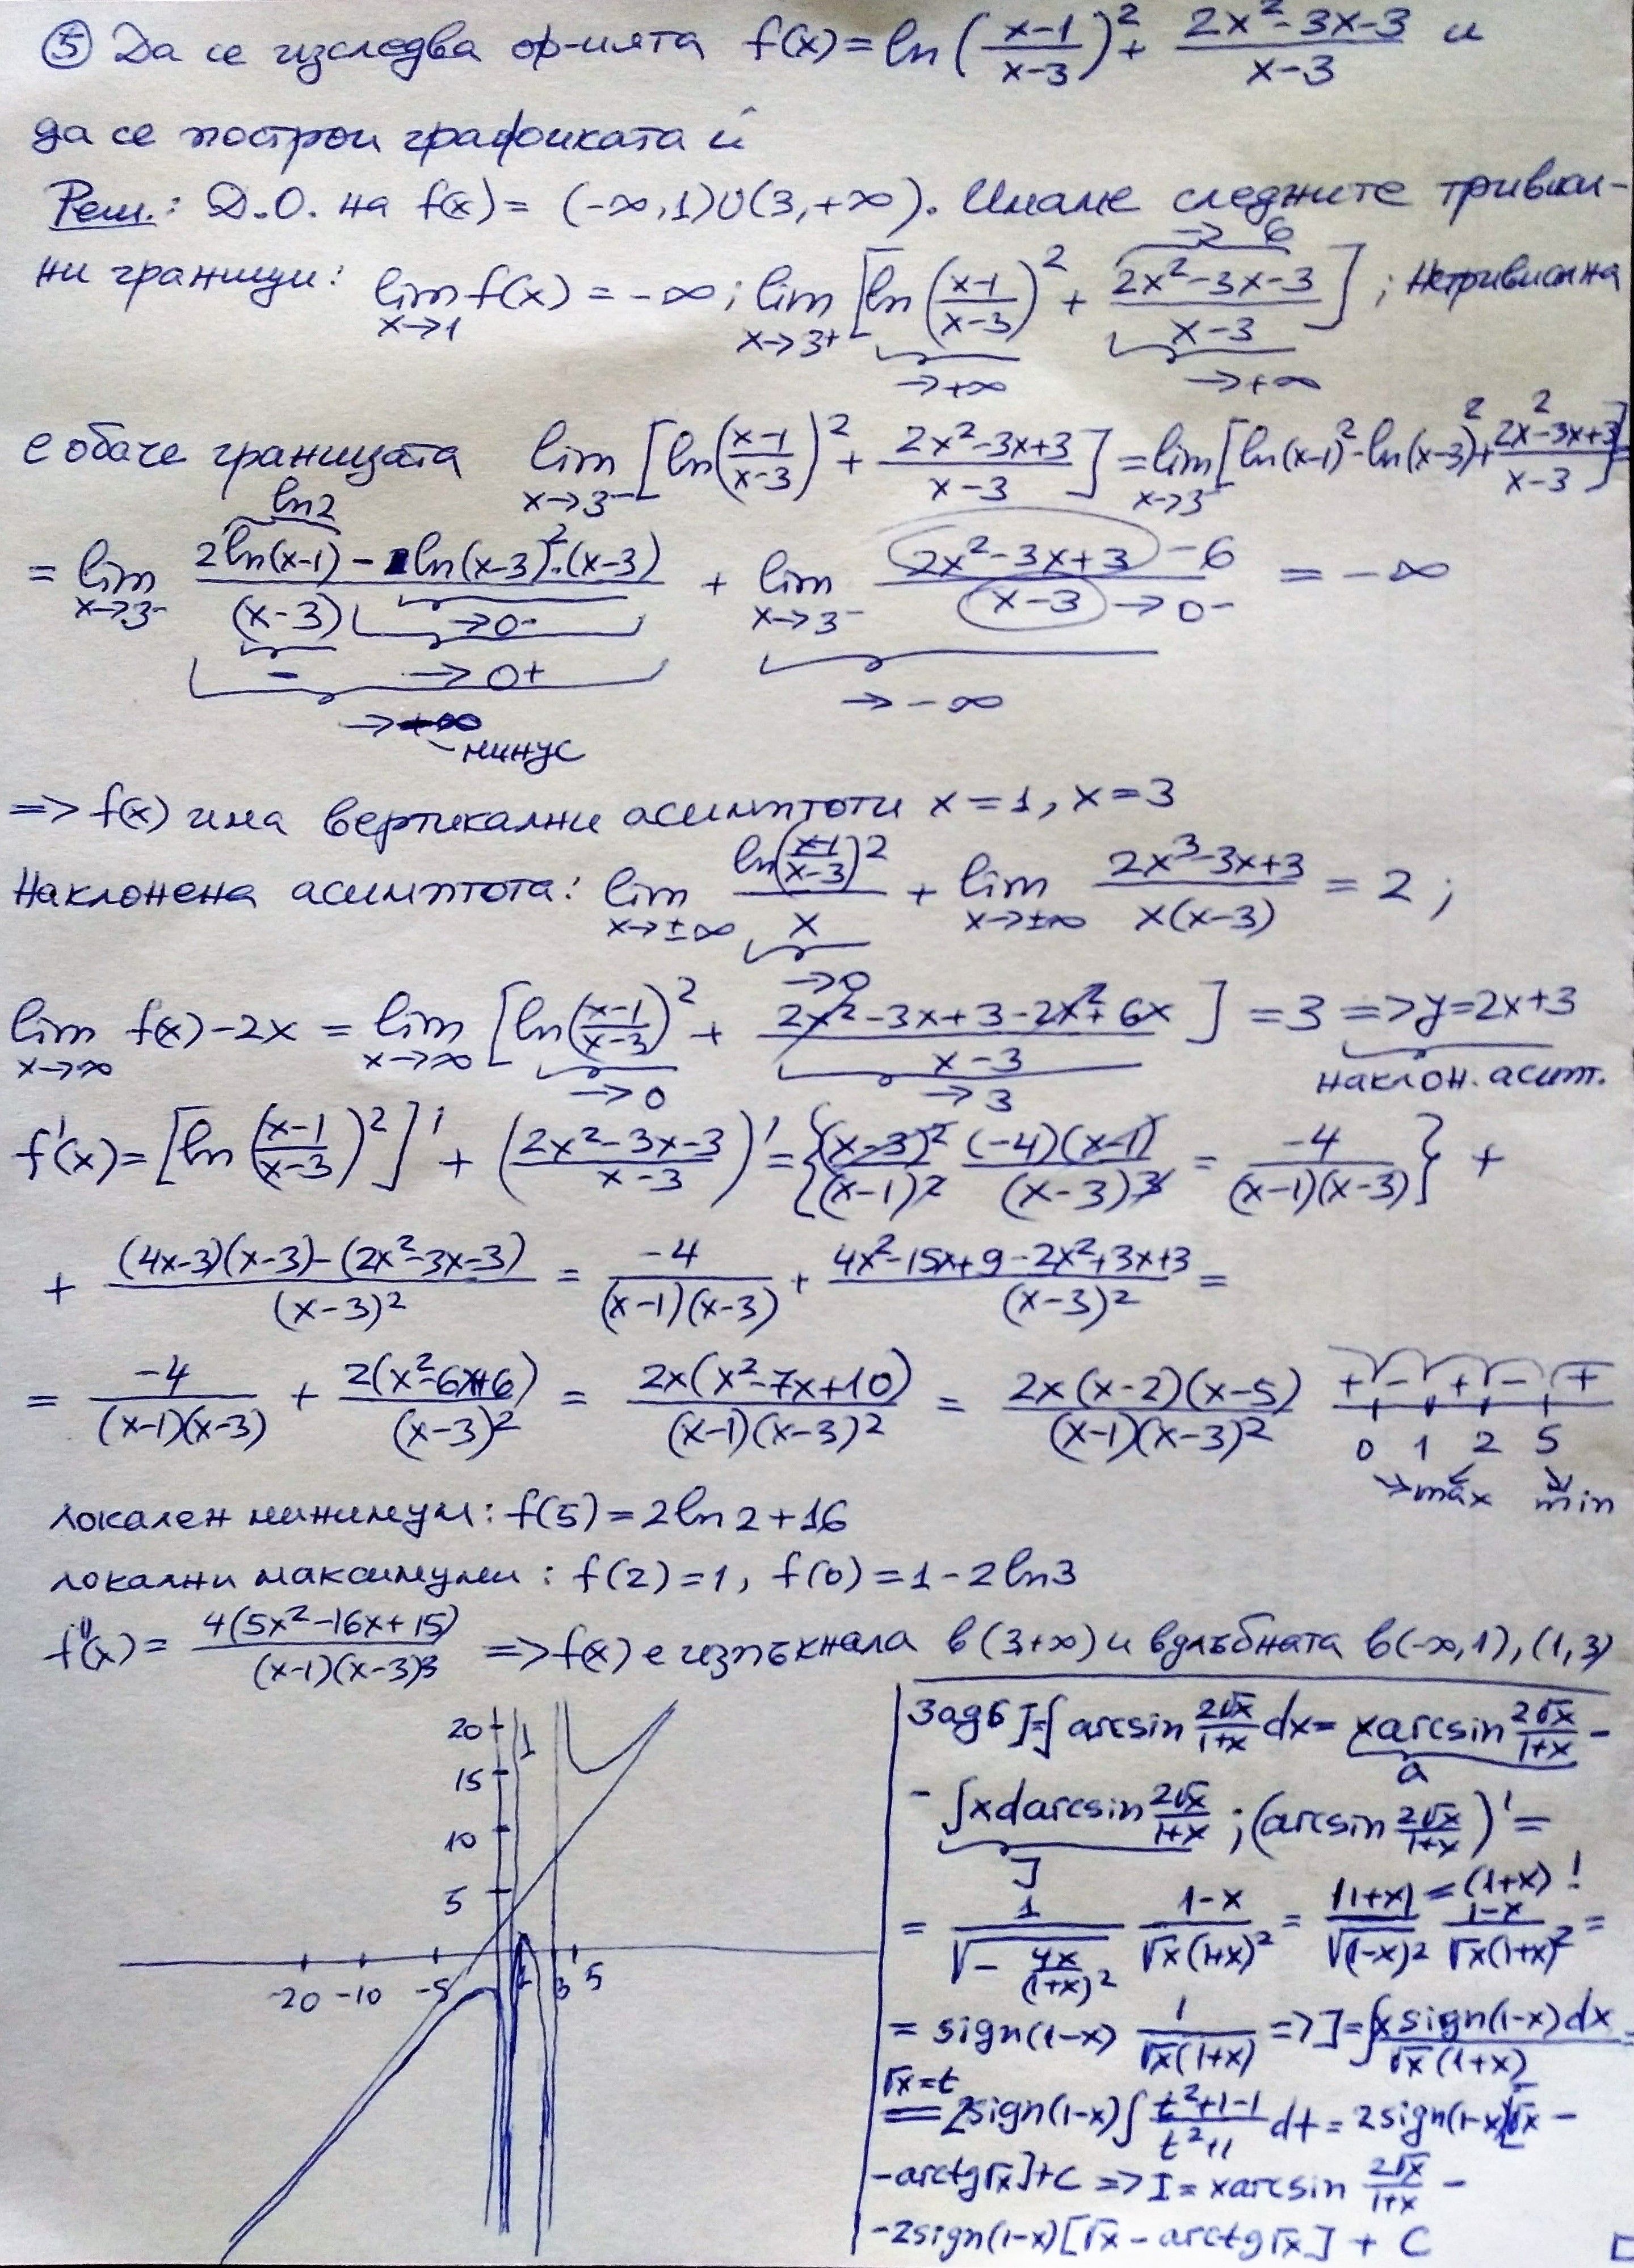 ⑤ Да се изследва ф-ията f(x) = ln((x-1)/(x-3))² + (2x²-3x-3)/(x-3) и
да се построи графиката ѝ
Реш.: Д.О. на f(x) = (-∞,1)∪(3,+∞). Имаме следните тривиал-
ни граници: lim x→1 f(x) = -∞; lim x→3+ [ln((x-1)/(x-3))² + (2x²-3x-3)/(x-3)]; Нетривиална
→ 6
→+∞ →+∞
е обаче границата lim x→3⁻ [ln((x-1)/(x-3))² + (2x²-3x+3)/(x-3)] = lim x→3⁻ [ln(x-1)² - ln(x-3)² + (2x²-3x+3)/(x-3)]
ln2
= lim x→3⁻ (2ln(x-1) - ln(x-3)².(x-3))/(x-3) + lim x→3⁻ (2x²-3x+3 - 6)/(x-3 →0-) = -∞
→0-
- →0+ →-∞
→ минус
=> f(x) има вертикални асимптоти x=1, x=3
Наклонена асимптота: lim x→±∞ ln((x-1)/(x-3))²/x + lim x→±∞ (2x³-3x+3)/(x(x-3)) = 2;
→0
lim x→∞ f(x)-2x = lim x→∞ [ln((x-1)/(x-3))² + (2x²-3x+3-2x²+6x)/(x-3)] = 3 => y=2x+3
→0 →3 наклон. асимт.
f'(x) = [ln((x-1)/(x-3))²]' + ((2x²-3x-3)/(x-3))' = {(x-3)²/(x-1)² (-4)(x-1)/(x-3)³ = -4/((x-1)(x-3))} +
+ ((4x-3)(x-3)-(2x²-3x-3))/(x-3)² = -4/((x-1)(x-3)) + (4x²-15x+9-2x²+3x+3)/(x-3)² =
= -4/((x-1)(x-3)) + 2(x²-6x+6)/(x-3)² = 2x(x²-7x+10)/((x-1)(x-3)²) = 2x(x-2)(x-5)/((x-1)(x-3)²) + - + - +
0 1 2 5
max min
локален минимум: f(5) = 2ln2+16
локални максимуми: f(2)=1, f(0)=1-2ln3
f''(x) = 4(5x²-16x+15)/((x-1)(x-3)³) => f(x) е изпъкнала в (3,+∞) и вдлъбната в (-∞,1), (1,3)
20
15
10
5
-20 -10 -5 1 3 5
Зад 6 I=∫arcsin (2√x)/(1+x) dx = x arcsin (2√x)/(1+x) -
a
- ∫x d arcsin (2√x)/(1+x); (arcsin (2√x)/(1+x))' =
J
= 1/√(- 4x/(1+x)²) (1-x)/(√x(1+x)²) = |1+x|/√(1-x)² (1-x)/(√x(1+x)²) =
=(1+x)!
= sign(1-x) 1/(√x(1+x)) => J=∫x sign(1-x)dx/(√x(1+x)) =
√x=t
= 2sign(1-x)∫(t²+1-1)/(t²+1) dt = 2sign(1-x)[√x -
- arctg√x]+C => I = x arcsin (2√x)/(1+x) -
-2sign(1-x)[√x - arctg√x] + C